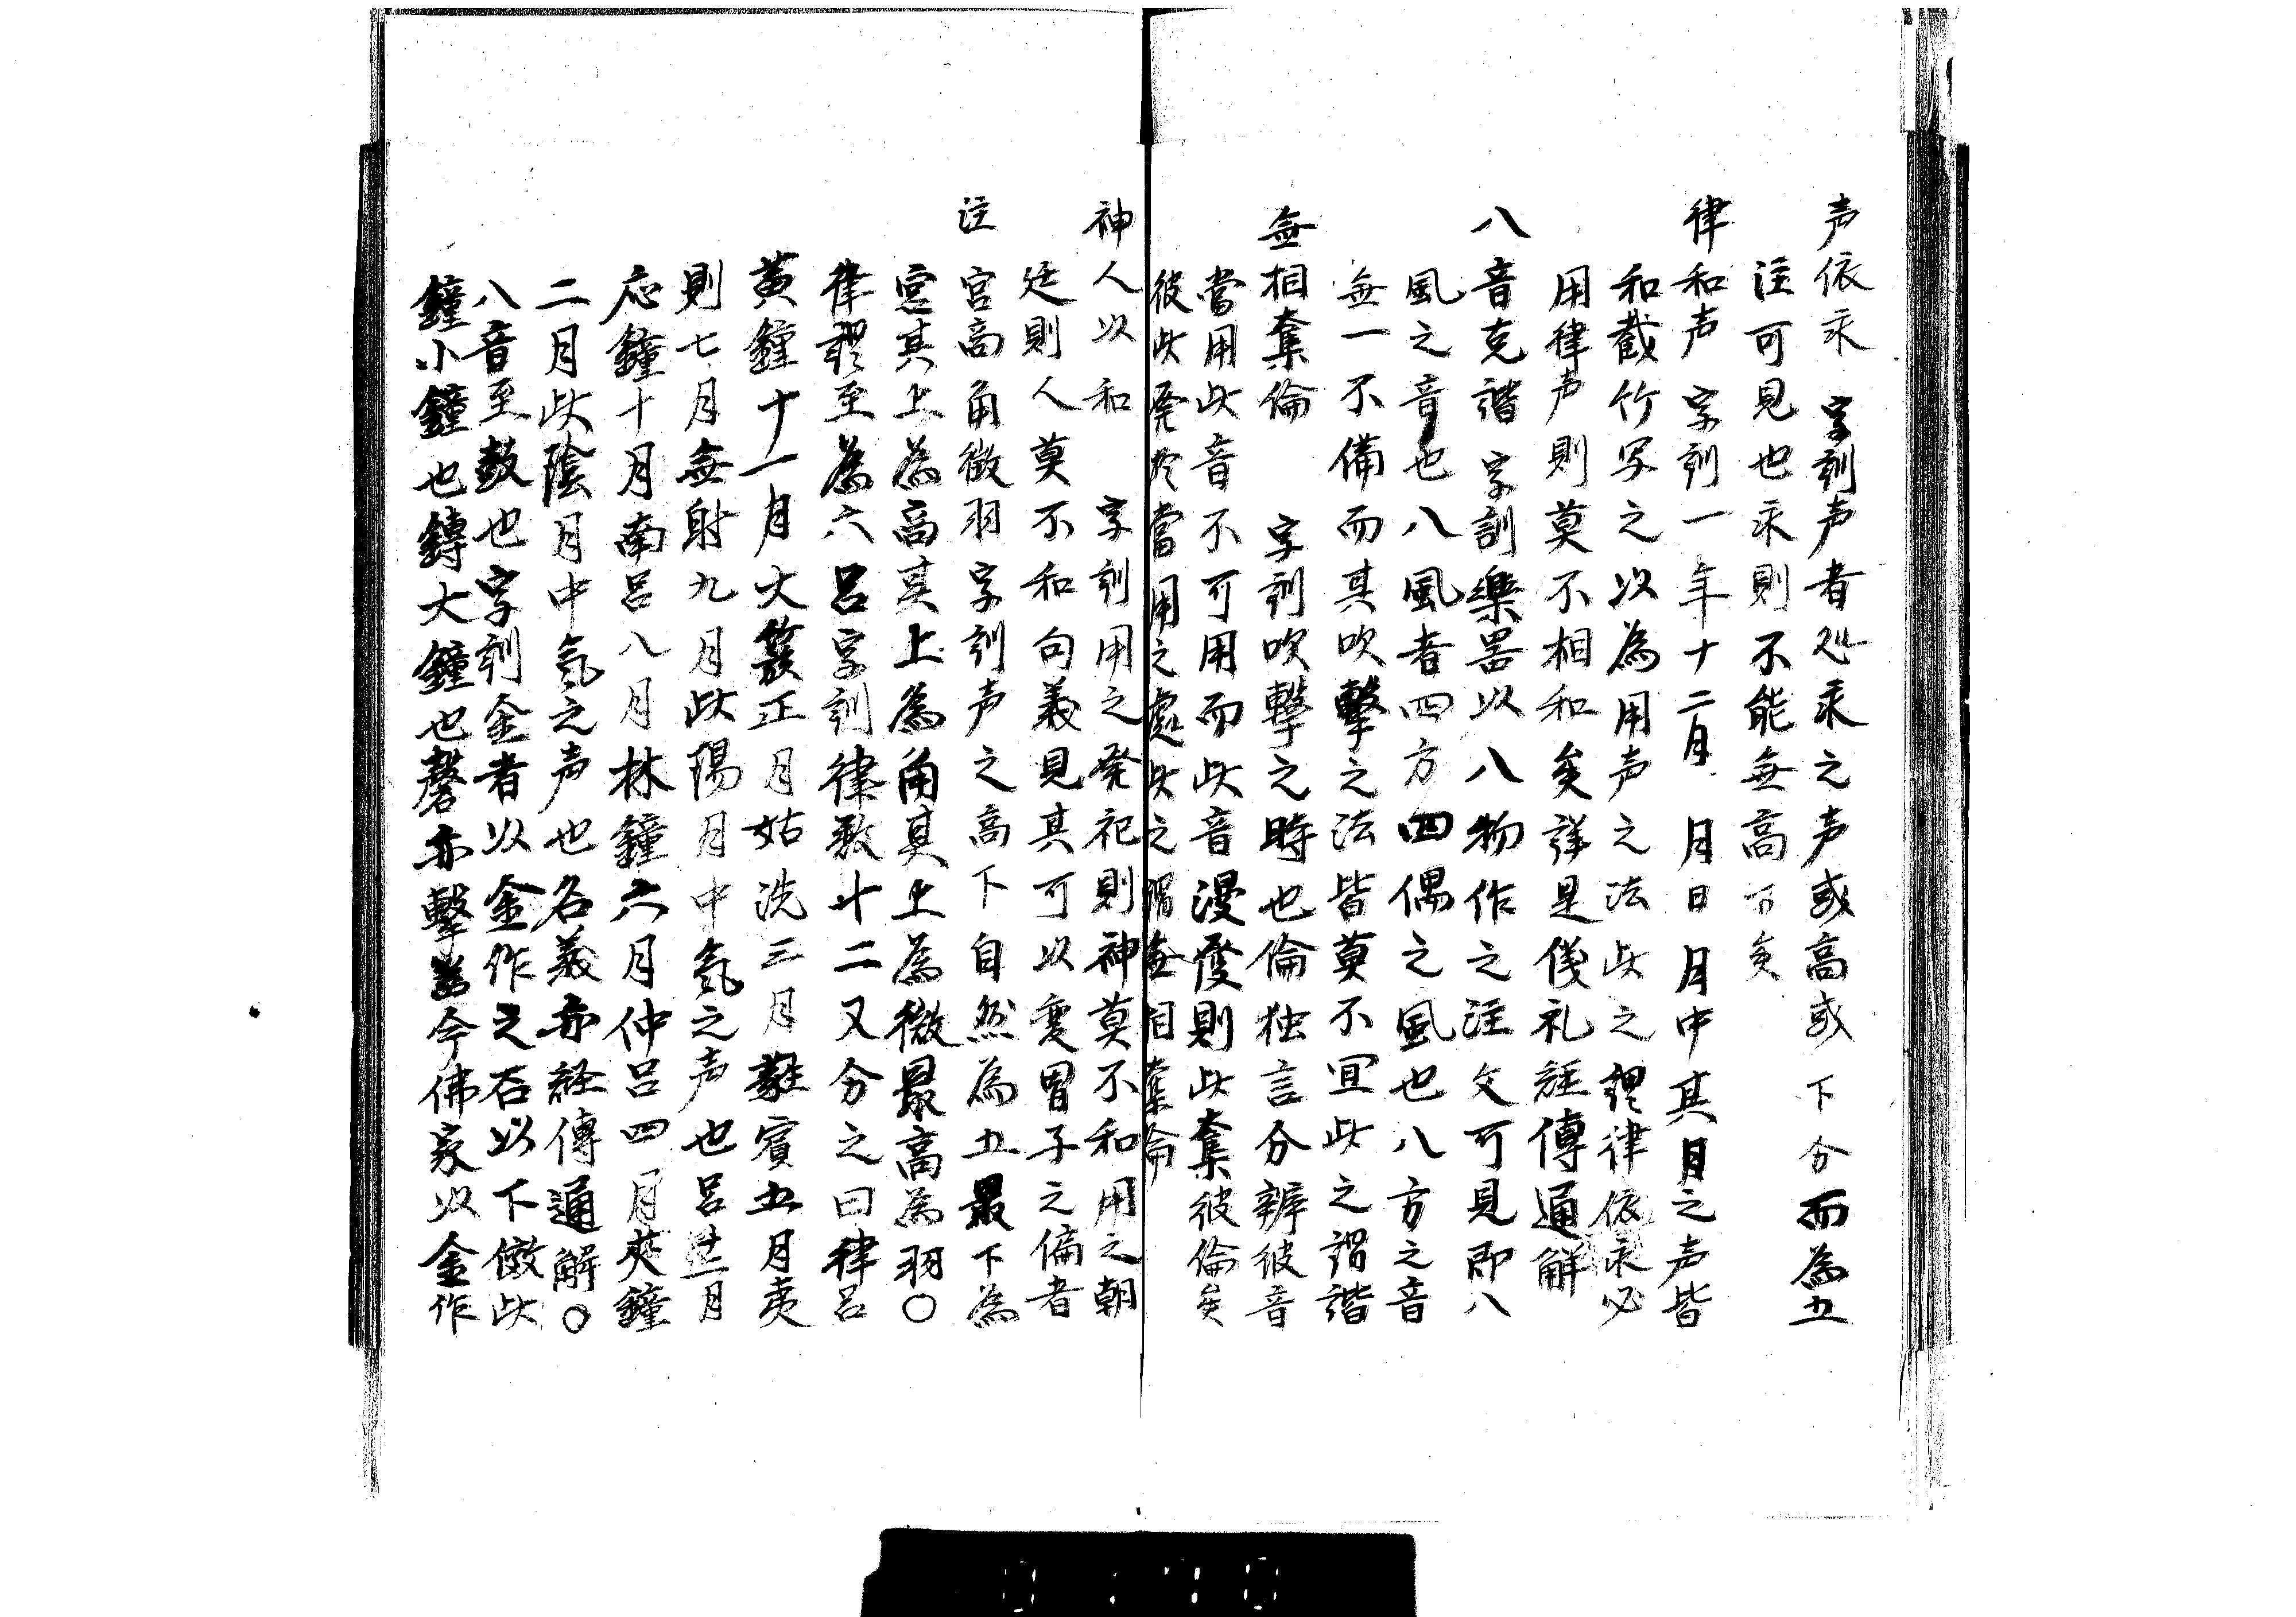 声依永　字訓声者処永之声或高或下分而為五
注可見也永則不能無高下矣
律和声　字訓一年十二月月日月中其月之声皆
和截竹写之以為用声之法此之謂律依永必
用律声則莫不相和矣詳是儀礼経傳通解
八音克諧　字訓樂器以八物作之注文可見即八
風之音也八風者四方四偶之風也八方之音
無一不備而其吹擊之法皆莫不宜此之謂諧
無相奪倫　字訓吹擊之時也倫独言分辨彼音
當用此音不可用而此音漫發則此奪彼倫矣
彼此発於當用之處此之謂無相奪倫
神人以和　字訓用之祭祀則神莫不和用之朝
廷則人莫不和句義見其可以変冑子之偏者
注　宮商角徴羽字訓声之高下自然為五最下為
宮其上為商其上為角其上為徴最高為羽〇
律謂至為六呂字訓律数十二又分之曰律呂
黃鐘十一月大簇正月姑洗三月蕤賓五月夷
則七月無射九月此陽月中気之声也呂十二月
応鐘十月南呂八月林鐘六月仲呂四月夾鐘
二月此陰月中気之声也名義亦経傳通解〇
八音至鼓也字訓金者以金作之石以下倣此
鐘小鐘也鎛大鐘也磬亦擊器今佛家以金作